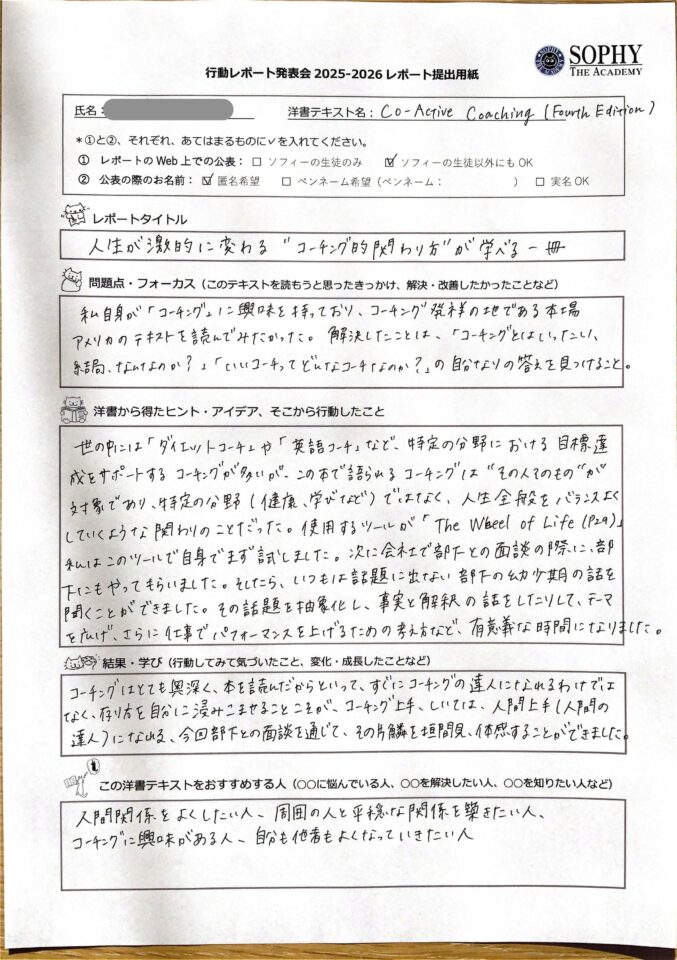 SOPHY
THE ACADEMY
行動レポート発表会 2025-2026 レポート提出用紙
氏名: 洋書テキスト名: Co-Active Coaching (Fourth Edition)
*①と②、それぞれ、あてはまるものに✓を入れてください。
① レポートの Web 上での公表: □ ソフィーの生徒のみ ☑ ソフィーの生徒以外にも OK
② 公表の際のお名前: ☑ 匿名希望 □ ペンネーム希望（ペンネーム: ） □ 実名 OK
レポートタイトル
人生が激的に変わる “コーチング的関わり方” が学べる一冊
問題点・フォーカス（このテキストを読もうと思ったきっかけ、解決・改善したかったことなど）
私自身が「コーチング」に興味を持っており、コーチング発祥の地である本場
アメリカのテキストを読んでみたかった。解決したことは、「コーチングとはいったい、
結局、なんなのか？」「いいコーチってどんなコーチなのか？」の自分なりの答えを見つけること。
洋書から得たヒント・アイデア、そこから行動したこと
世の中には「ダイエットコーチ」や「英語コーチ」など、特定の分野における目標達
成をサポートするコーチングが多いが、この本で語られるコーチングは“その人そのもの”が
対象であり、特定の分野（健康、学びなど）ではなく、人生全般をバランスよく
していくような関わりのことだった。使用するツールが「The Wheel of Life (P29)」
私はこのツールで自身でまず試しました。次に会社で部下との面談の際に、部
下にもやってもらいました。そしたら、いつもは話題に出ない部下の幼少期の話を
聞くことができました。その話題を抽象化し、事実と解釈の話をしたりして、テーマ
を広げ、さらに仕事でパフォーマンスを上げるための考え方など、有意義な時間になりました。
結果・学び（行動してみて気づいたこと、変化・成長したことなど）
コーチングはとても奥深く、本を読んだからといって、すぐにコーチングの達人になれるわけでは
なく、在り方を自分に浸みこませることこそが、コーチング上手、しいては、人間上手（人間の
達人）になれる、今回部下との面談を通じて、その片鱗を垣間見、体感することができました。
この洋書テキストをおすすめする人（○○に悩んでいる人、○○を解決したい人、○○を知りたい人など）
人間関係をよくしたい人、周囲の人と平穏な関係を築きたい人、
コーチングに興味がある人、自分も他者もよくなっていきたい人